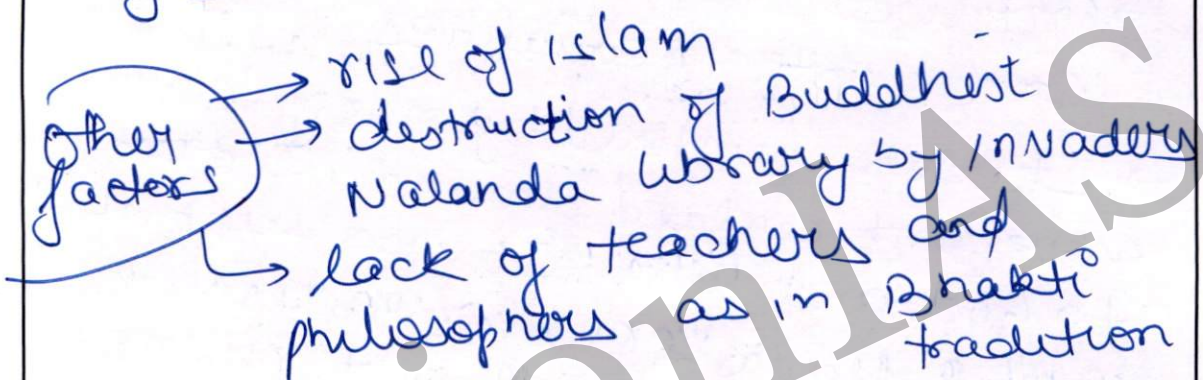 other
factors
rise of islam
destruction of Buddhist
Nalanda library by invaders
lack of teachers and
philosophers as in Bhakti
tradition
onIAS